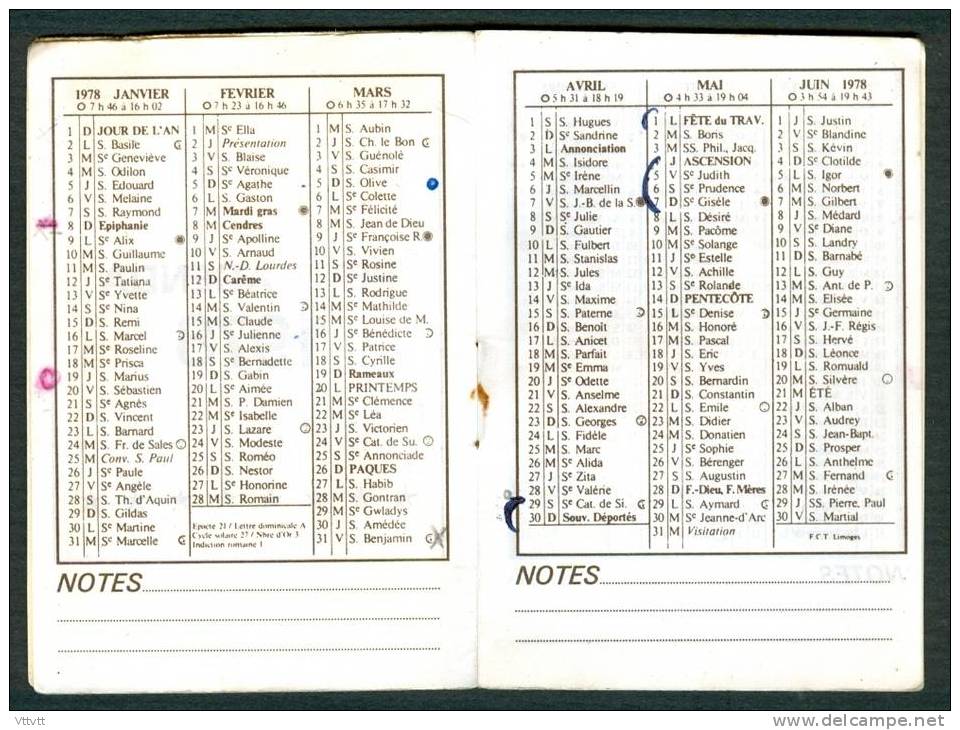 1978 JANVIER
7 h 46 à 16 h 02
1 D JOUR DE L'AN
2 L S. Basile
3 M Se Geneviève
4 M S. Odilon
5 J S. Edouard
6 V S. Melaine
7 S S. Raymond
8 D Epiphanie
9 L Se Alix
10 M S. Guillaume
11 M S. Paulin
12 J Se Tatiana
13 V Se Yvette
14 S Se Nina
15 D S. Remi
16 L S. Marcel
17 M Se Roseline
18 M Se Prisca
19 J S. Marius
20 V S. Sébastien
21 S Se Agnès
22 D S. Vincent
23 L S. Barnard
24 M S. Fr. de Sales
25 M Conv. S. Paul
26 J Se Paule
27 V Se Angèle
28 S S. Th. d'Aquin
29 D S. Gildas
30 L Se Martine
31 M Se Marcelle
FEVRIER
7 h 23 à 16 h 46
1 M Se Ella
2 J Présentation
3 V S. Blaise
4 S Se Véronique
5 D Se Agathe
6 L S. Gaston
7 M Mardi gras
8 M Cendres
9 J Se Apolline
10 V S. Arnaud
11 S N.-D. Lourdes
12 D Carême
13 L Se Béatrice
14 M S. Valentin
15 M S. Claude
16 J Se Julienne
17 V S. Alexis
18 S Se Bernadette
19 D S. Gabin
20 L Se Aimée
21 M S. P. Damien
22 M Se Isabelle
23 J S. Lazare
24 V S. Modeste
25 S S. Roméo
26 D S. Nestor
27 L Se Honorine
28 M S. Romain
Epacte 21 / Lettre dominicale A
Cycle solaire 27 / Nbre d'Or 3
Indiction romaine 1
MARS
6 h 35 à 17 h 32
1 M S. Aubin
2 J S. Ch. le Bon
3 V S. Guénolé
4 S S. Casimir
5 D S. Olive
6 L Se Colette
7 M Se Félicité
8 M S. Jean de Dieu
9 J Se Françoise R.
10 V S. Vivien
11 S Se Rosine
12 D Se Justine
13 L S. Rodrigue
14 M Se Mathilde
15 M Se Louise de M.
16 J Se Bénédicte
17 V S. Patrice
18 S S. Cyrille
19 D Rameaux
20 L PRINTEMPS
21 M Se Clémence
22 M Se Léa
23 J S. Victorien
24 V Se Cat. de Su.
25 S Se Annonciade
26 D PAQUES
27 L S. Habib
28 M S. Gontran
29 M Se Gwladys
30 J S. Amédée
31 V S. Benjamin
NOTES
AVRIL
5 h 31 à 18 h 19
1 S S. Hugues
2 D Se Sandrine
3 L Annonciation
4 M S. Isidore
5 M Se Irène
6 J S. Marcellin
7 V S. J.-B. de la S.
8 S Se Julie
9 D S. Gautier
10 L S. Fulbert
11 M S. Stanislas
12 M S. Jules
13 J Se Ida
14 V S. Maxime
15 S S. Paterne
16 D S. Benoît
17 L S. Anicet
18 M S. Parfait
19 M Se Emma
20 J Se Odette
21 V S. Anselme
22 S S. Alexandre
23 D S. Georges
24 L S. Fidèle
25 M S. Marc
26 M Se Alida
27 J Se Zita
28 V Se Valérie
29 S Se Cat. de Si.
30 D Souv. Déportés
MAI
4 h 33 à 19 h 04
1 L FÊTE du TRAV.
2 M S. Boris
3 M SS. Phil., Jacq.
4 J ASCENSION
5 V Se Judith
6 S Se Prudence
7 D Se Gisèle
8 L S. Désiré
9 M S. Pacôme
10 M Se Solange
11 J Se Estelle
12 V S. Achille
13 S Se Rolande
14 D PENTECÔTE
15 L Se Denise
16 M S. Honoré
17 M S. Pascal
18 J S. Eric
19 V S. Yves
20 S S. Bernardin
21 D S. Constantin
22 L S. Emile
23 M S. Didier
24 M S. Donatien
25 J Se Sophie
26 V S. Bérenger
27 S S. Augustin
28 D F.-Dieu, F. Mères
29 L S. Aymard
30 M Se Jeanne-d'Arc
31 M Visitation
JUIN 1978
3 h 54 à 19 h 43
1 J S. Justin
2 V Se Blandine
3 S S. Kévin
4 D Se Clotilde
5 L S. Igor
6 M S. Norbert
7 M S. Gilbert
8 J S. Médard
9 V Se Diane
10 S S. Landry
11 D S. Barnabé
12 L S. Guy
13 M S. Ant. de P.
14 M S. Elisée
15 J Se Germaine
16 V S. J.-F. Régis
17 S S. Hervé
18 D S. Léonce
19 L S. Romuald
20 M S. Silvère
21 M ÉTÉ
22 J S. Alban
23 V S. Audrey
24 S S. Jean-Bapt.
25 D S. Prosper
26 L S. Anthelme
27 M S. Fernand
28 M S. Irénée
29 J SS. Pierre, Paul
30 V S. Martial
F.C.T. Limoges
NOTES
Vttvtt
www.delcampe.net